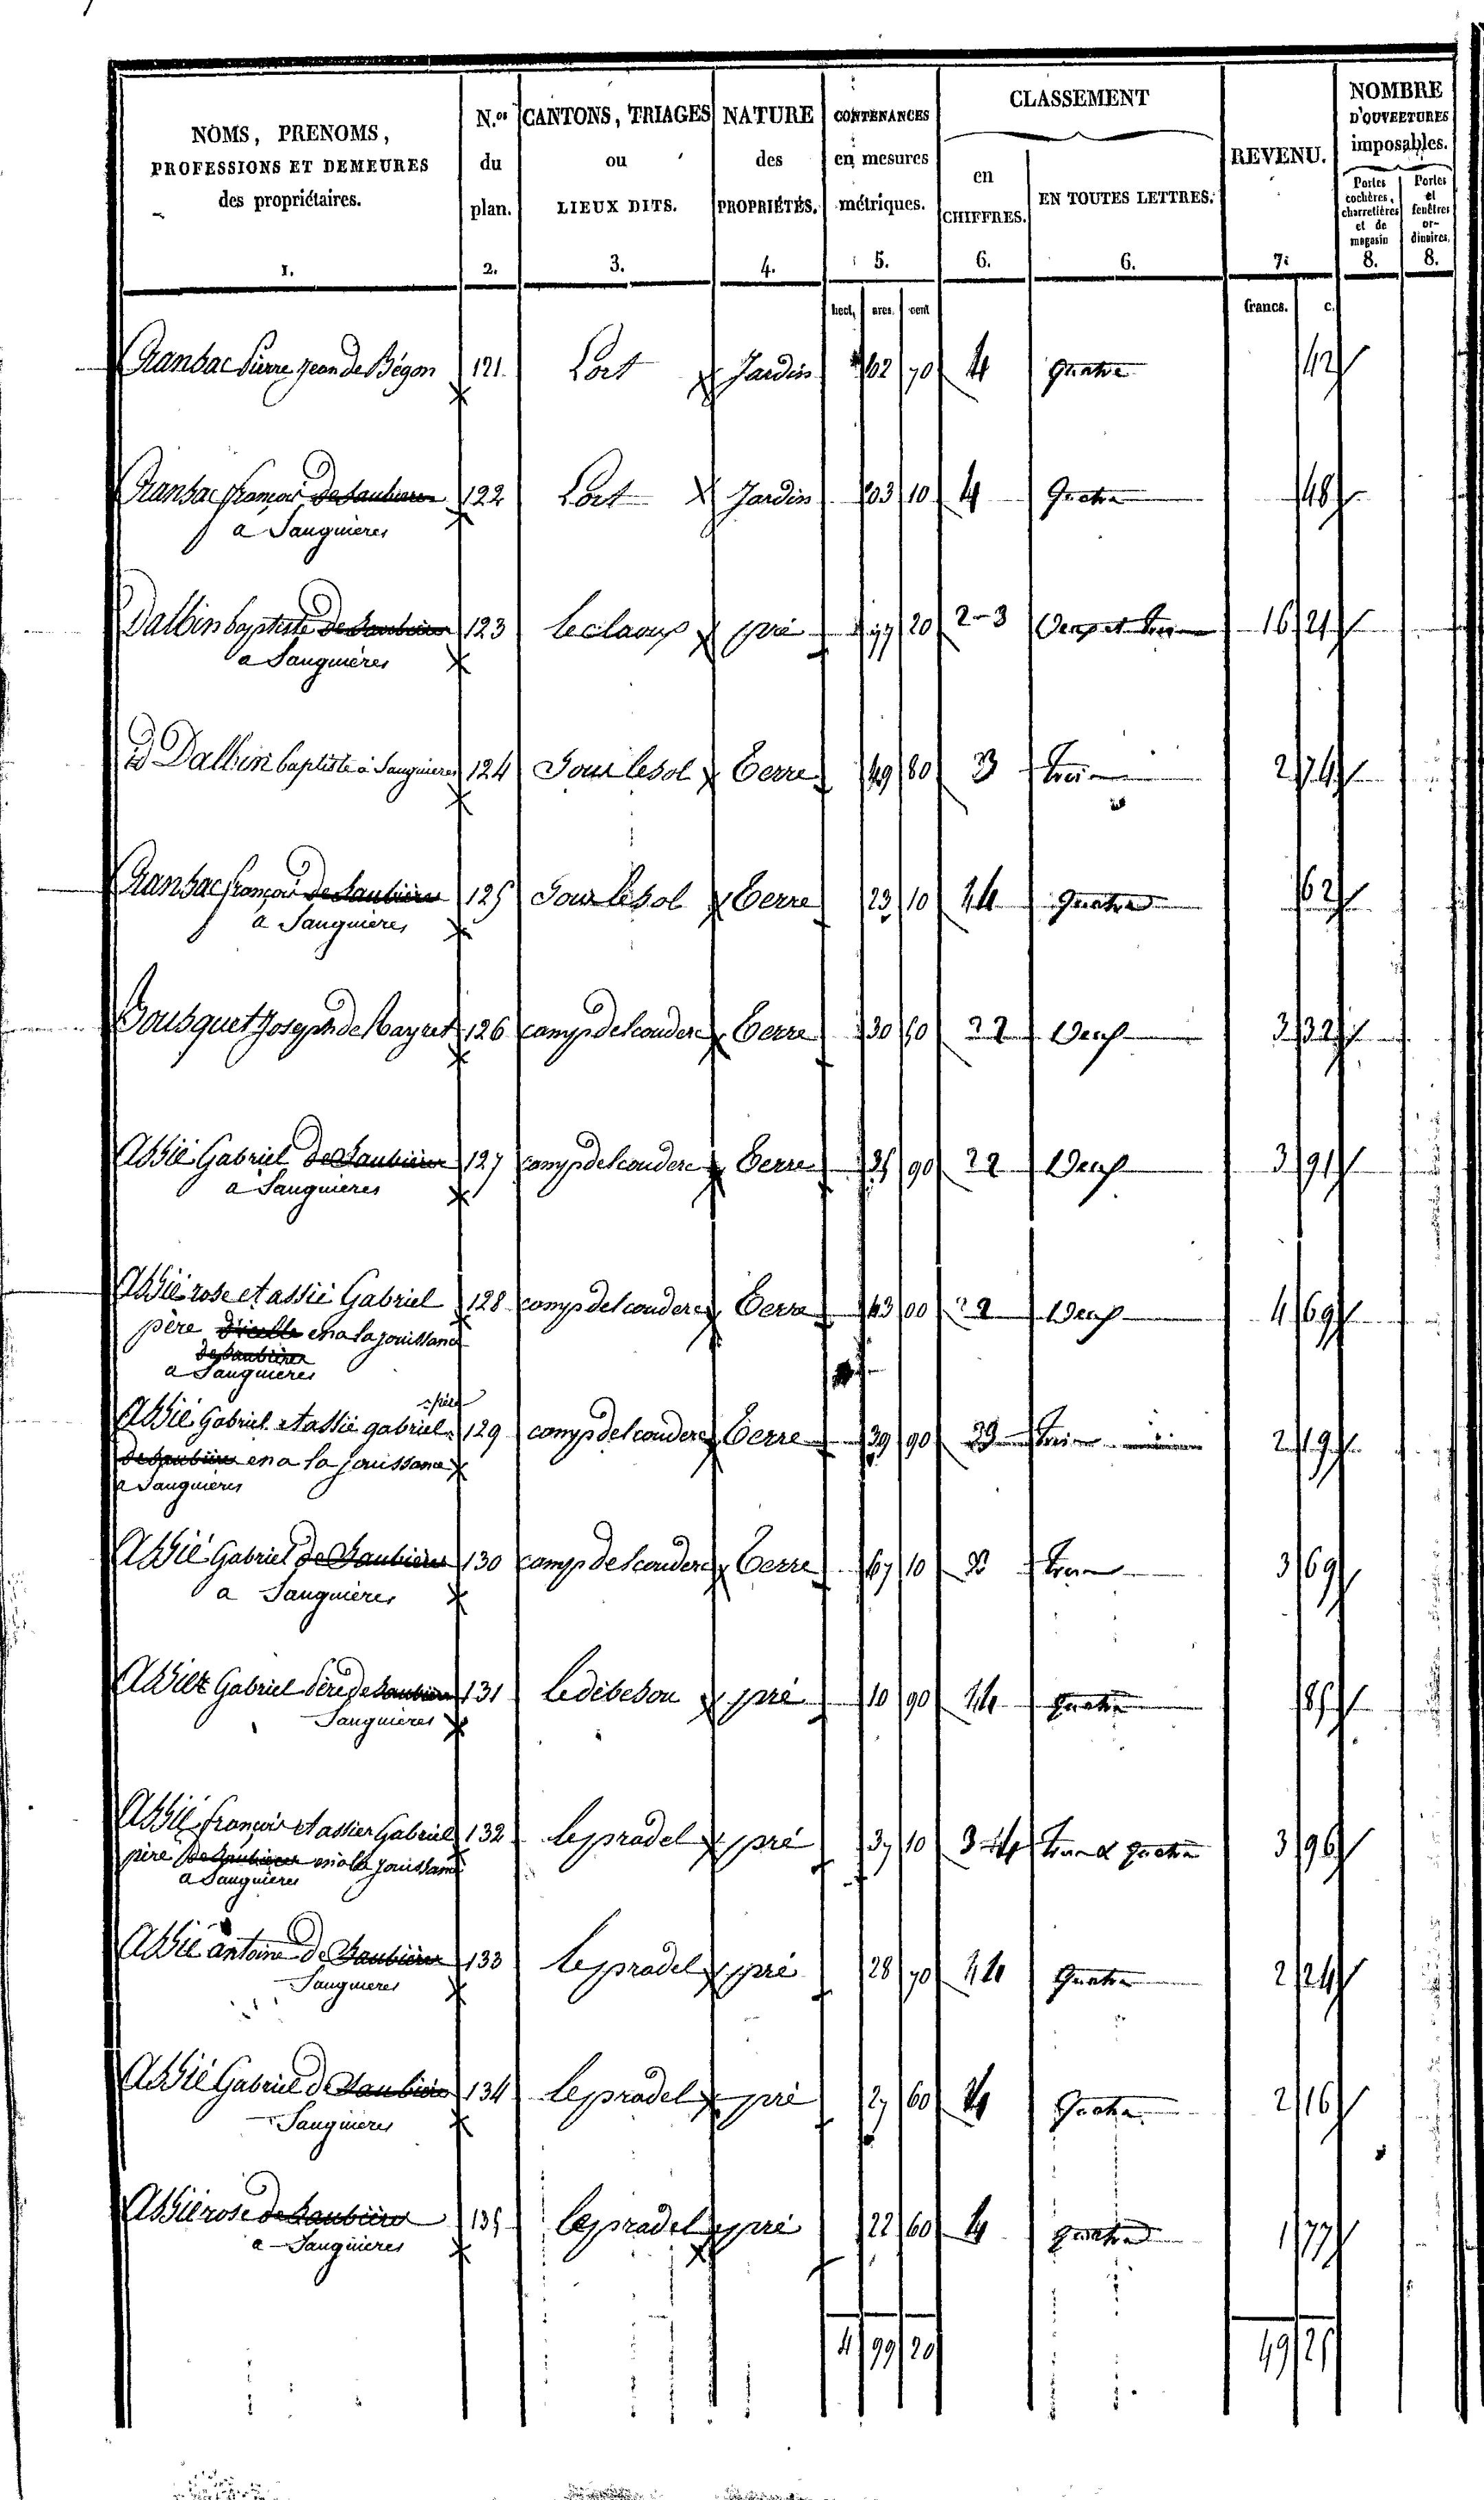 NOMS, PRENOMS,
PROFESSIONS ET DEMEURES
des propriétaires.
1.
N.os
du
plan.
2.
CANTONS, TRIAGES
ou
LIEUX DITS.
3.
NATURE
des
PROPRIÉTÉS.
4.
CONTENANCES
en mesures
métriques.
5.
CLASSEMENT
en
CHIFFRES.
6.
EN TOUTES LETTRES.
6.
REVENU.
7.
NOMBRE
D'OUVERTURES
imposables.
Portes
cochères,
charretières
et de
magasin
8.
Portes
et
fenêtres
or-
dinaires.
8.
hect. ares. cent francs. c.
Cransac Pierre Jean de Bégon 121 Lort Jardin 02 70 4 quatre 42
Cransac françois de Saubières 122 Lort Jardin 03 10 4 Quatre 48
a Sauguières
Dalbin baptiste de Saubières 123 Le claoup pré 77 20 2-3 Deux et trois 16 21
a Sauguières
id Dalbin baptiste à Sauguieres 124 Sour lesol Terre 49 80 3 trois 2 74
Cransac françois de Saubières 125 Sour lesol Terre 23 10 4 quatre 62
a Sauguières
Bousquet Joseph de Mayret 126 camp del couderc Terre 30 60 2 Deux 3 32
Assié Gabriel de Saubières 127 camp del couderc Terre 35 90 2 Deux 3 91
a Sauguières
Assié rose et assié Gabriel 128 camp del couderc Terre 43 00 2 Deux 4 69
père d'icelle en a la jouissance
de Saubières
a Sauguières
père
Assié Gabriel et assié gabriel 129 camp del couderc Terre 39 90 3 trois 2 19
de Saubières en a la jouissance
a Sauguières
Assié Gabriel de Saubières 130 camp del couderc Terre 67 10 3 trois 3 69
a Sauguières
Assier Gabriel Père de Saubières 131 Le débesou pré 10 90 4 quatre 85
Sauguières
Assié françois et assier Gabriel 132 le pradel pré 37 10 3-4 trois & quatre 3 96
père de Saubières en a la jouissance
a Sauguières
Assié antoine de Saubières 133 le pradel pré 28 70 4 Quatre 2 24
Sauguières
Assié Gabriel de Saubières 134 le pradel pré 27 60 4 Quatre 2 16
Sauguières
Assié rose de Saubières 135 le pradel pré 22 60 4 quatre 1 77
a Sauguières
4 99 20 49 25